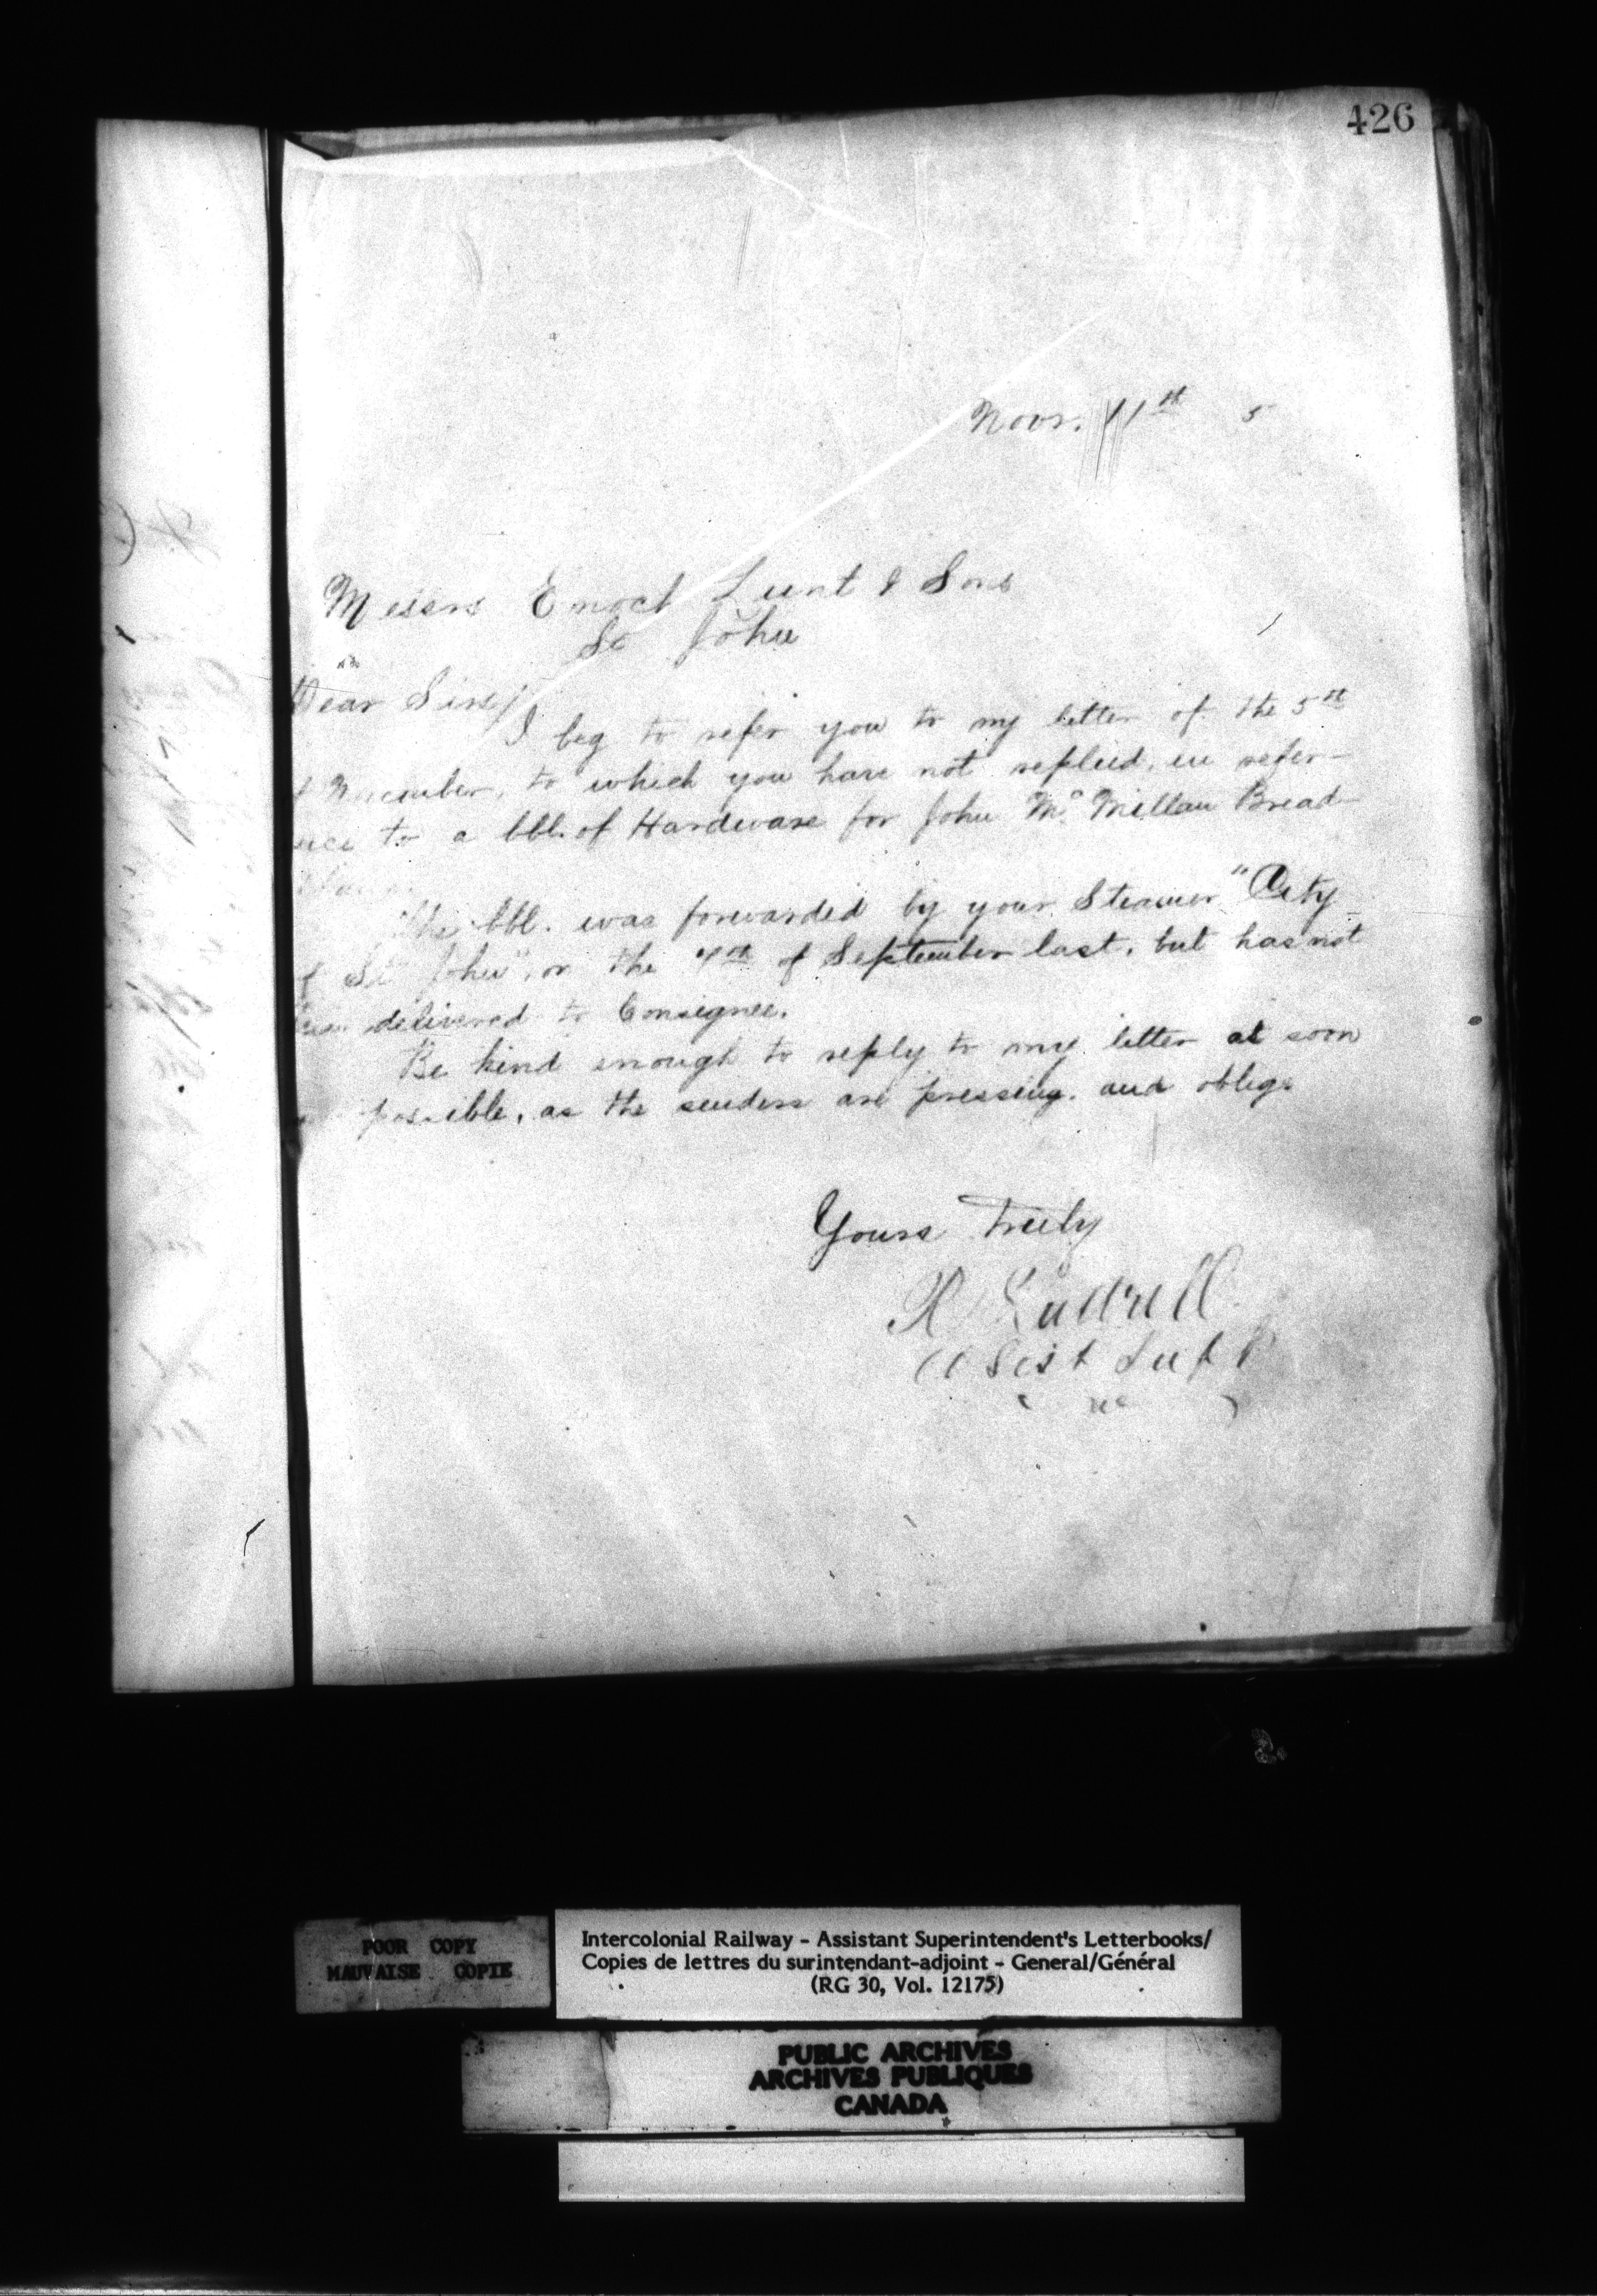 426
Novr. 11th 5
Messrs Enoch Lunt & Sons
St John
Dear Sirs/
I beg to refer you to my letter of the 5th
November, to which you have not replied, in refer-
ence to a bbl. of Hardware for John Mc Millan Bread-
The bbl. was forwarded by your Steamer "City
of St John", on the 7th of September last, but has not
been delivered to Consignee.
Be kind enough to reply to my letter at soon
possible, as the senders are pressing. and oblige
Yours Truly
R Luttrell
Asist Supt
POOR COPY
MAUVAISE COPIE
Intercolonial Railway - Assistant Superintendent's Letterbooks/
Copies de lettres du surintendant-adjoint - General/Général
(RG 30, Vol. 12175)
PUBLIC ARCHIVES
ARCHIVES PUBLIQUES
CANADA